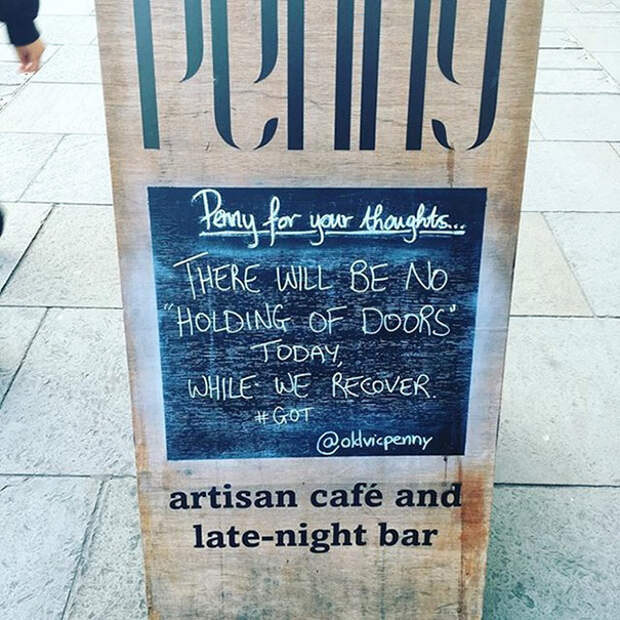 PENNY
Penny for your thoughts...
THERE WILL BE NO
"HOLDING OF DOORS"
TODAY,
WHILE WE RECOVER.
#GOT
@oldvicpenny
artisan café and
late-night bar